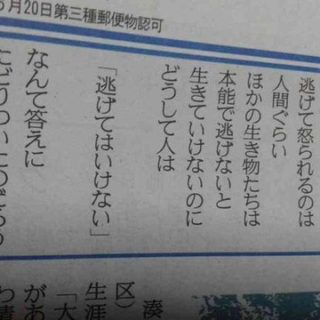 月20日第三種郵便物認可
逃げて怒られるのは
人間ぐらい
ほかの生き物たちは
本能で逃げないと
生きていけないのに
どうして人は
「逃げてはいけない」
なんて答えに
たどりついたのだろう
湊
区）
生涯
「大
があ